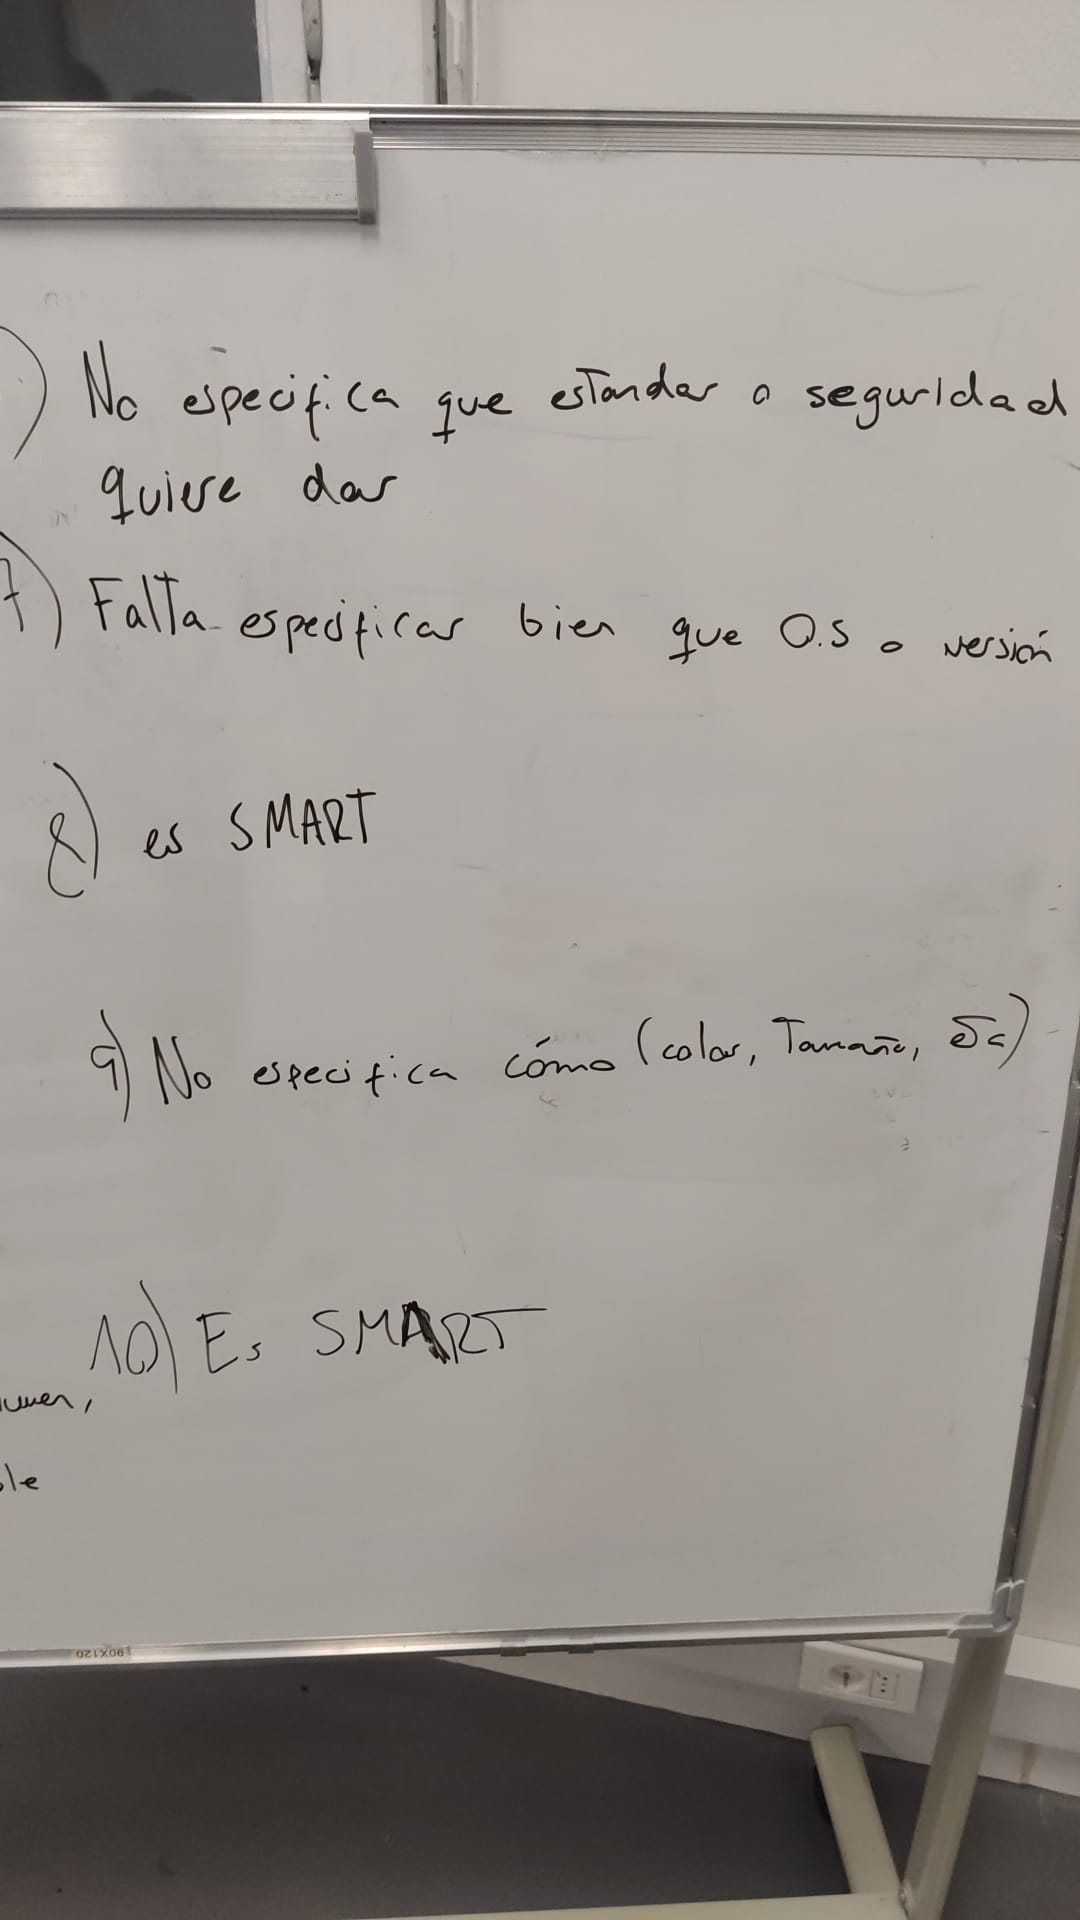 ) No especifica que estandar o seguridad
quiere dar
7) Falta especificar bien que O.S o versión
8) es SMART
9) No especifica cómo (color, Tamaño, etc)
10) Es SMART
90X120